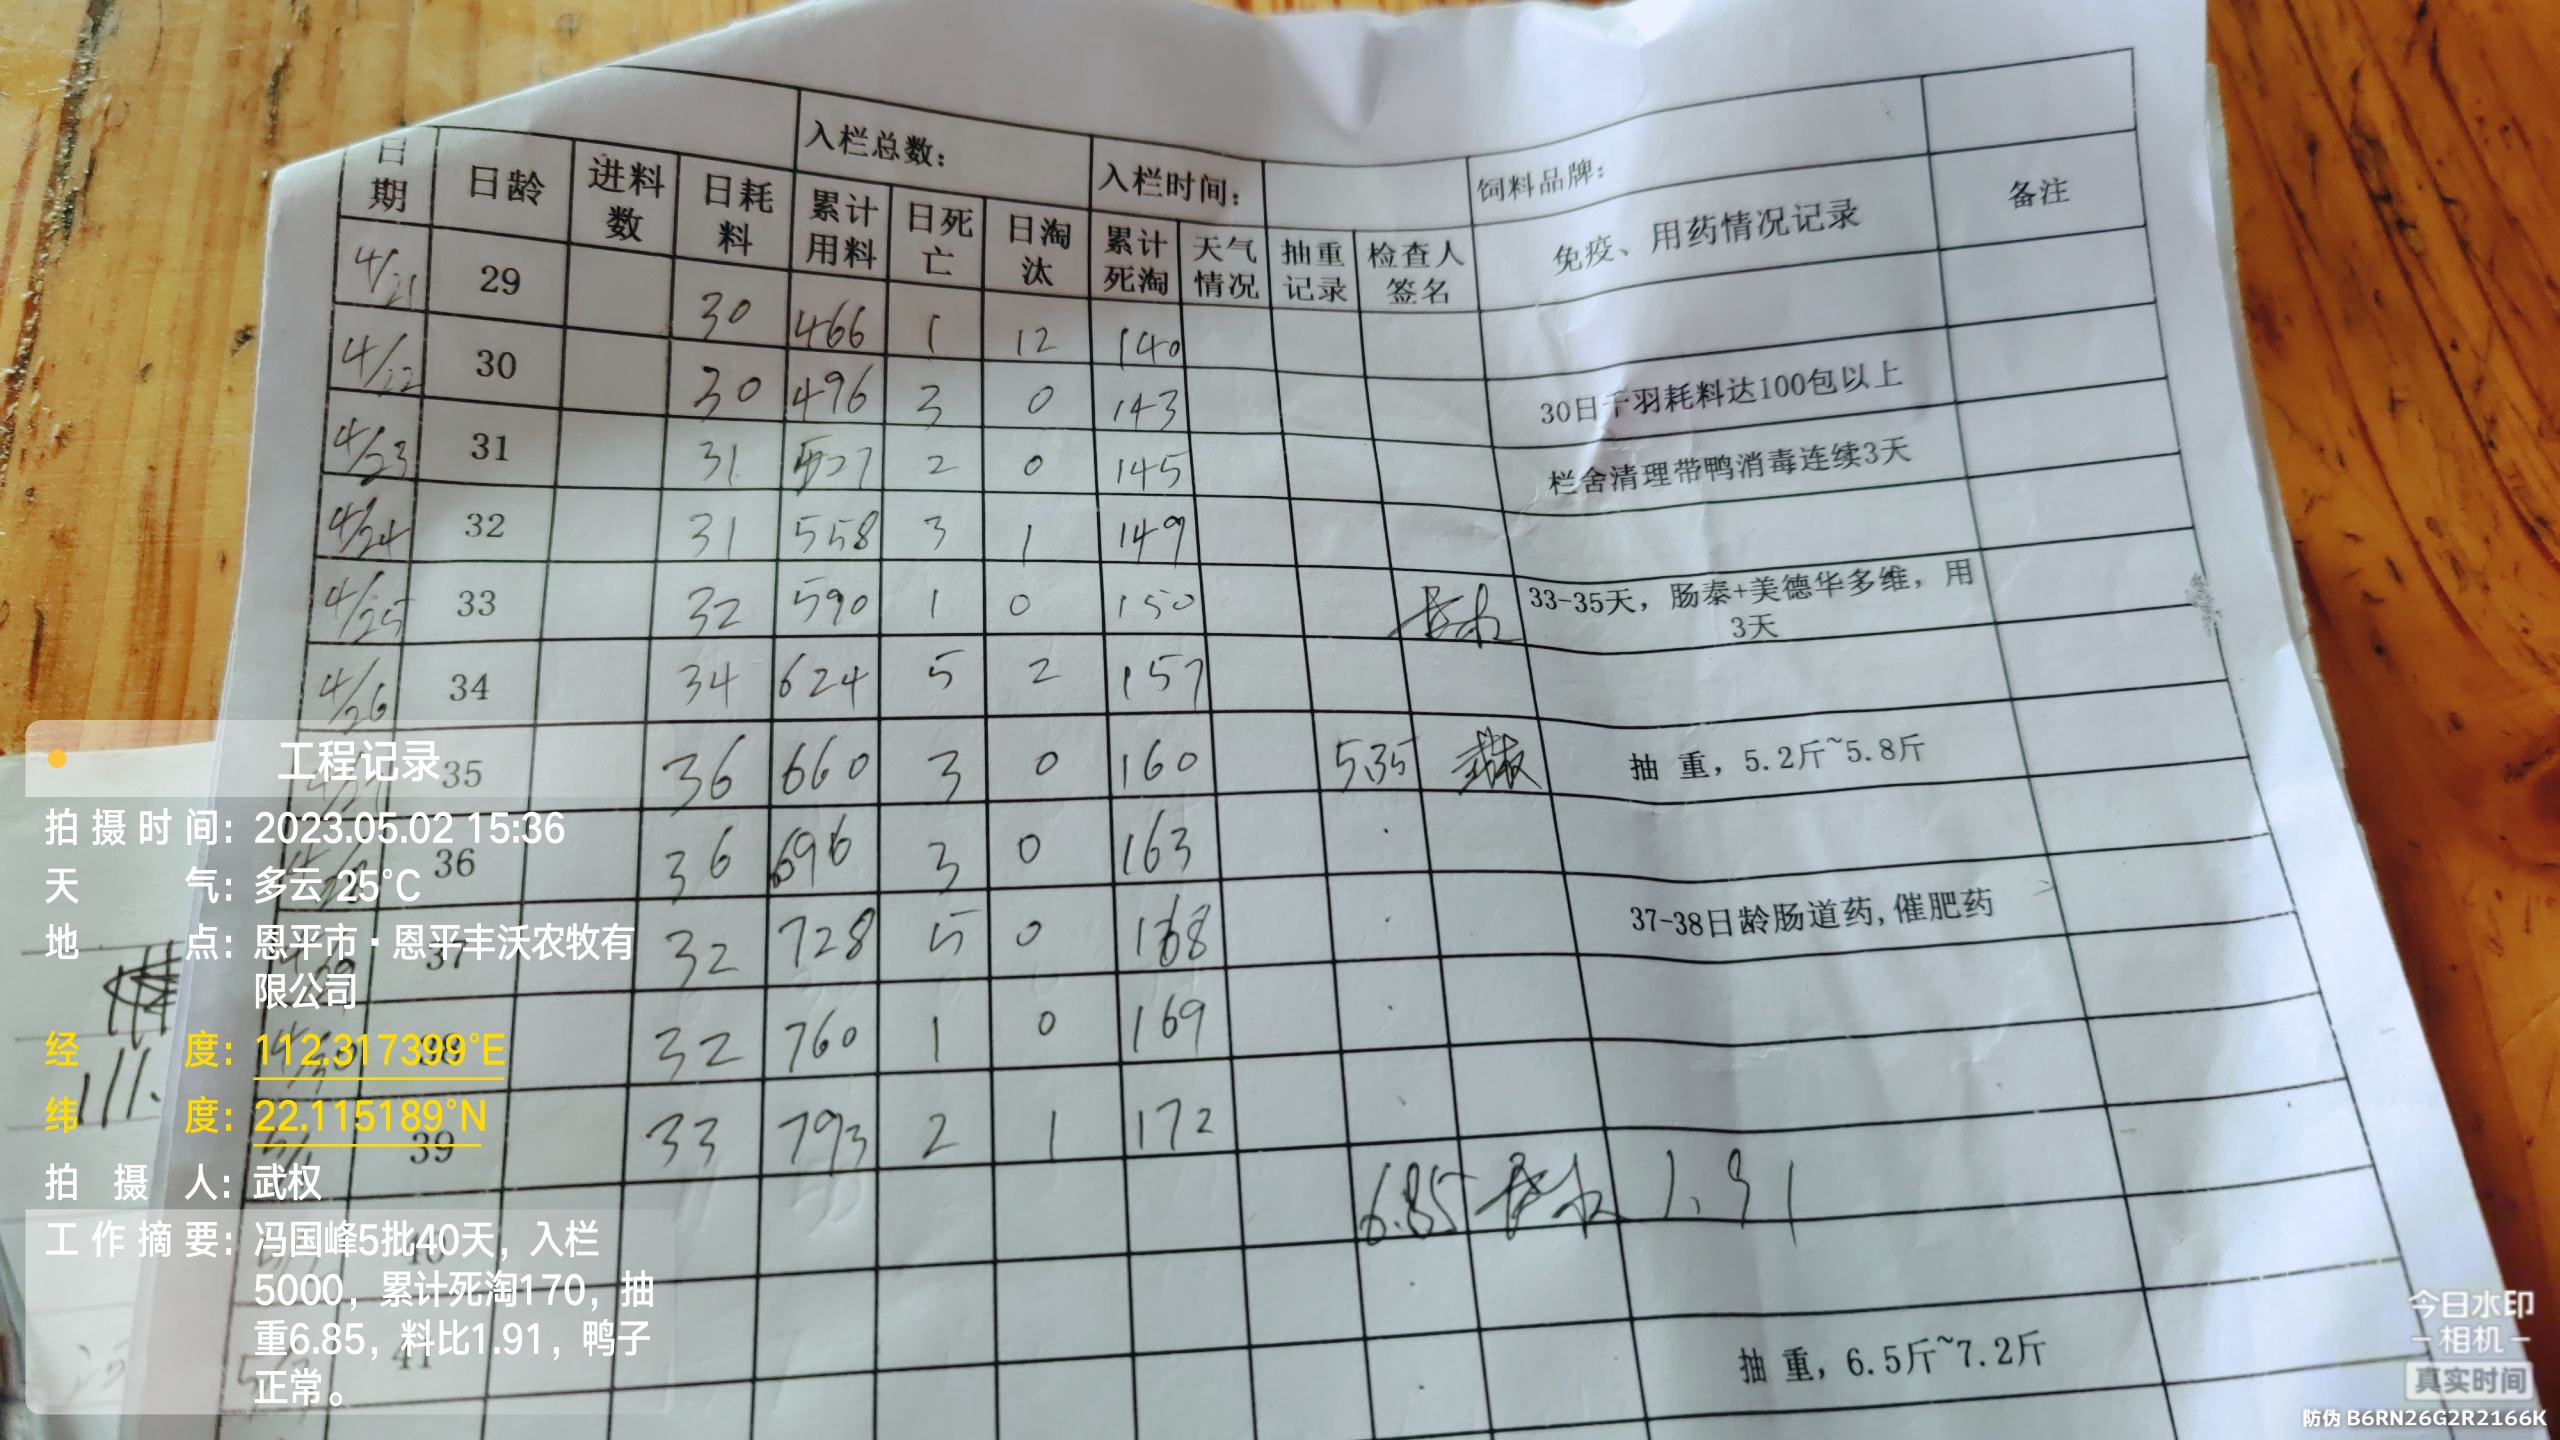 入栏总数： 入栏时间： 饲料品牌：
日期 日龄 进料数 日耗料 累计用料 日死亡 日淘汰 累计死淘 天气情况 抽重记录 检查人签名 免疫、用药情况记录 备注
4/21 29 30 466 1 12 140
4/22 30 30 496 3 0 143 30日千羽耗料达100包以上
4/23 31 31 527 2 0 145 栏舍清理带鸭消毒连续3天
4/24 32 31 558 3 1 149
4/25 33 32 590 1 0 150 33-35天，肠泰+美德华多维，用3天
4/26 34 34 624 5 2 157
35 36 660 3 0 160 5.35 武权 抽 重，5.2斤~5.8斤
36 36 696 3 0 163
37 32 728 5 0 168 37-38日龄肠道药,催肥药
38 32 760 1 0 169
39 33 793 2 1 172
40 6.85 1.91
41 抽 重，6.5斤~7.2斤
工程记录
拍摄时间：2023.05.02 15:36
天气：多云 25°C
地点：恩平市·恩平丰沃农牧有
限公司
经度：112.317399°E
纬度：22.115189°N
拍摄人：武权
工作摘要：冯国峰5批40天，入栏
5000，累计死淘170，抽
重6.85，料比1.91，鸭子
正常。
今日水印
相机
真实时间
防伪 B6RN26G2R2166K